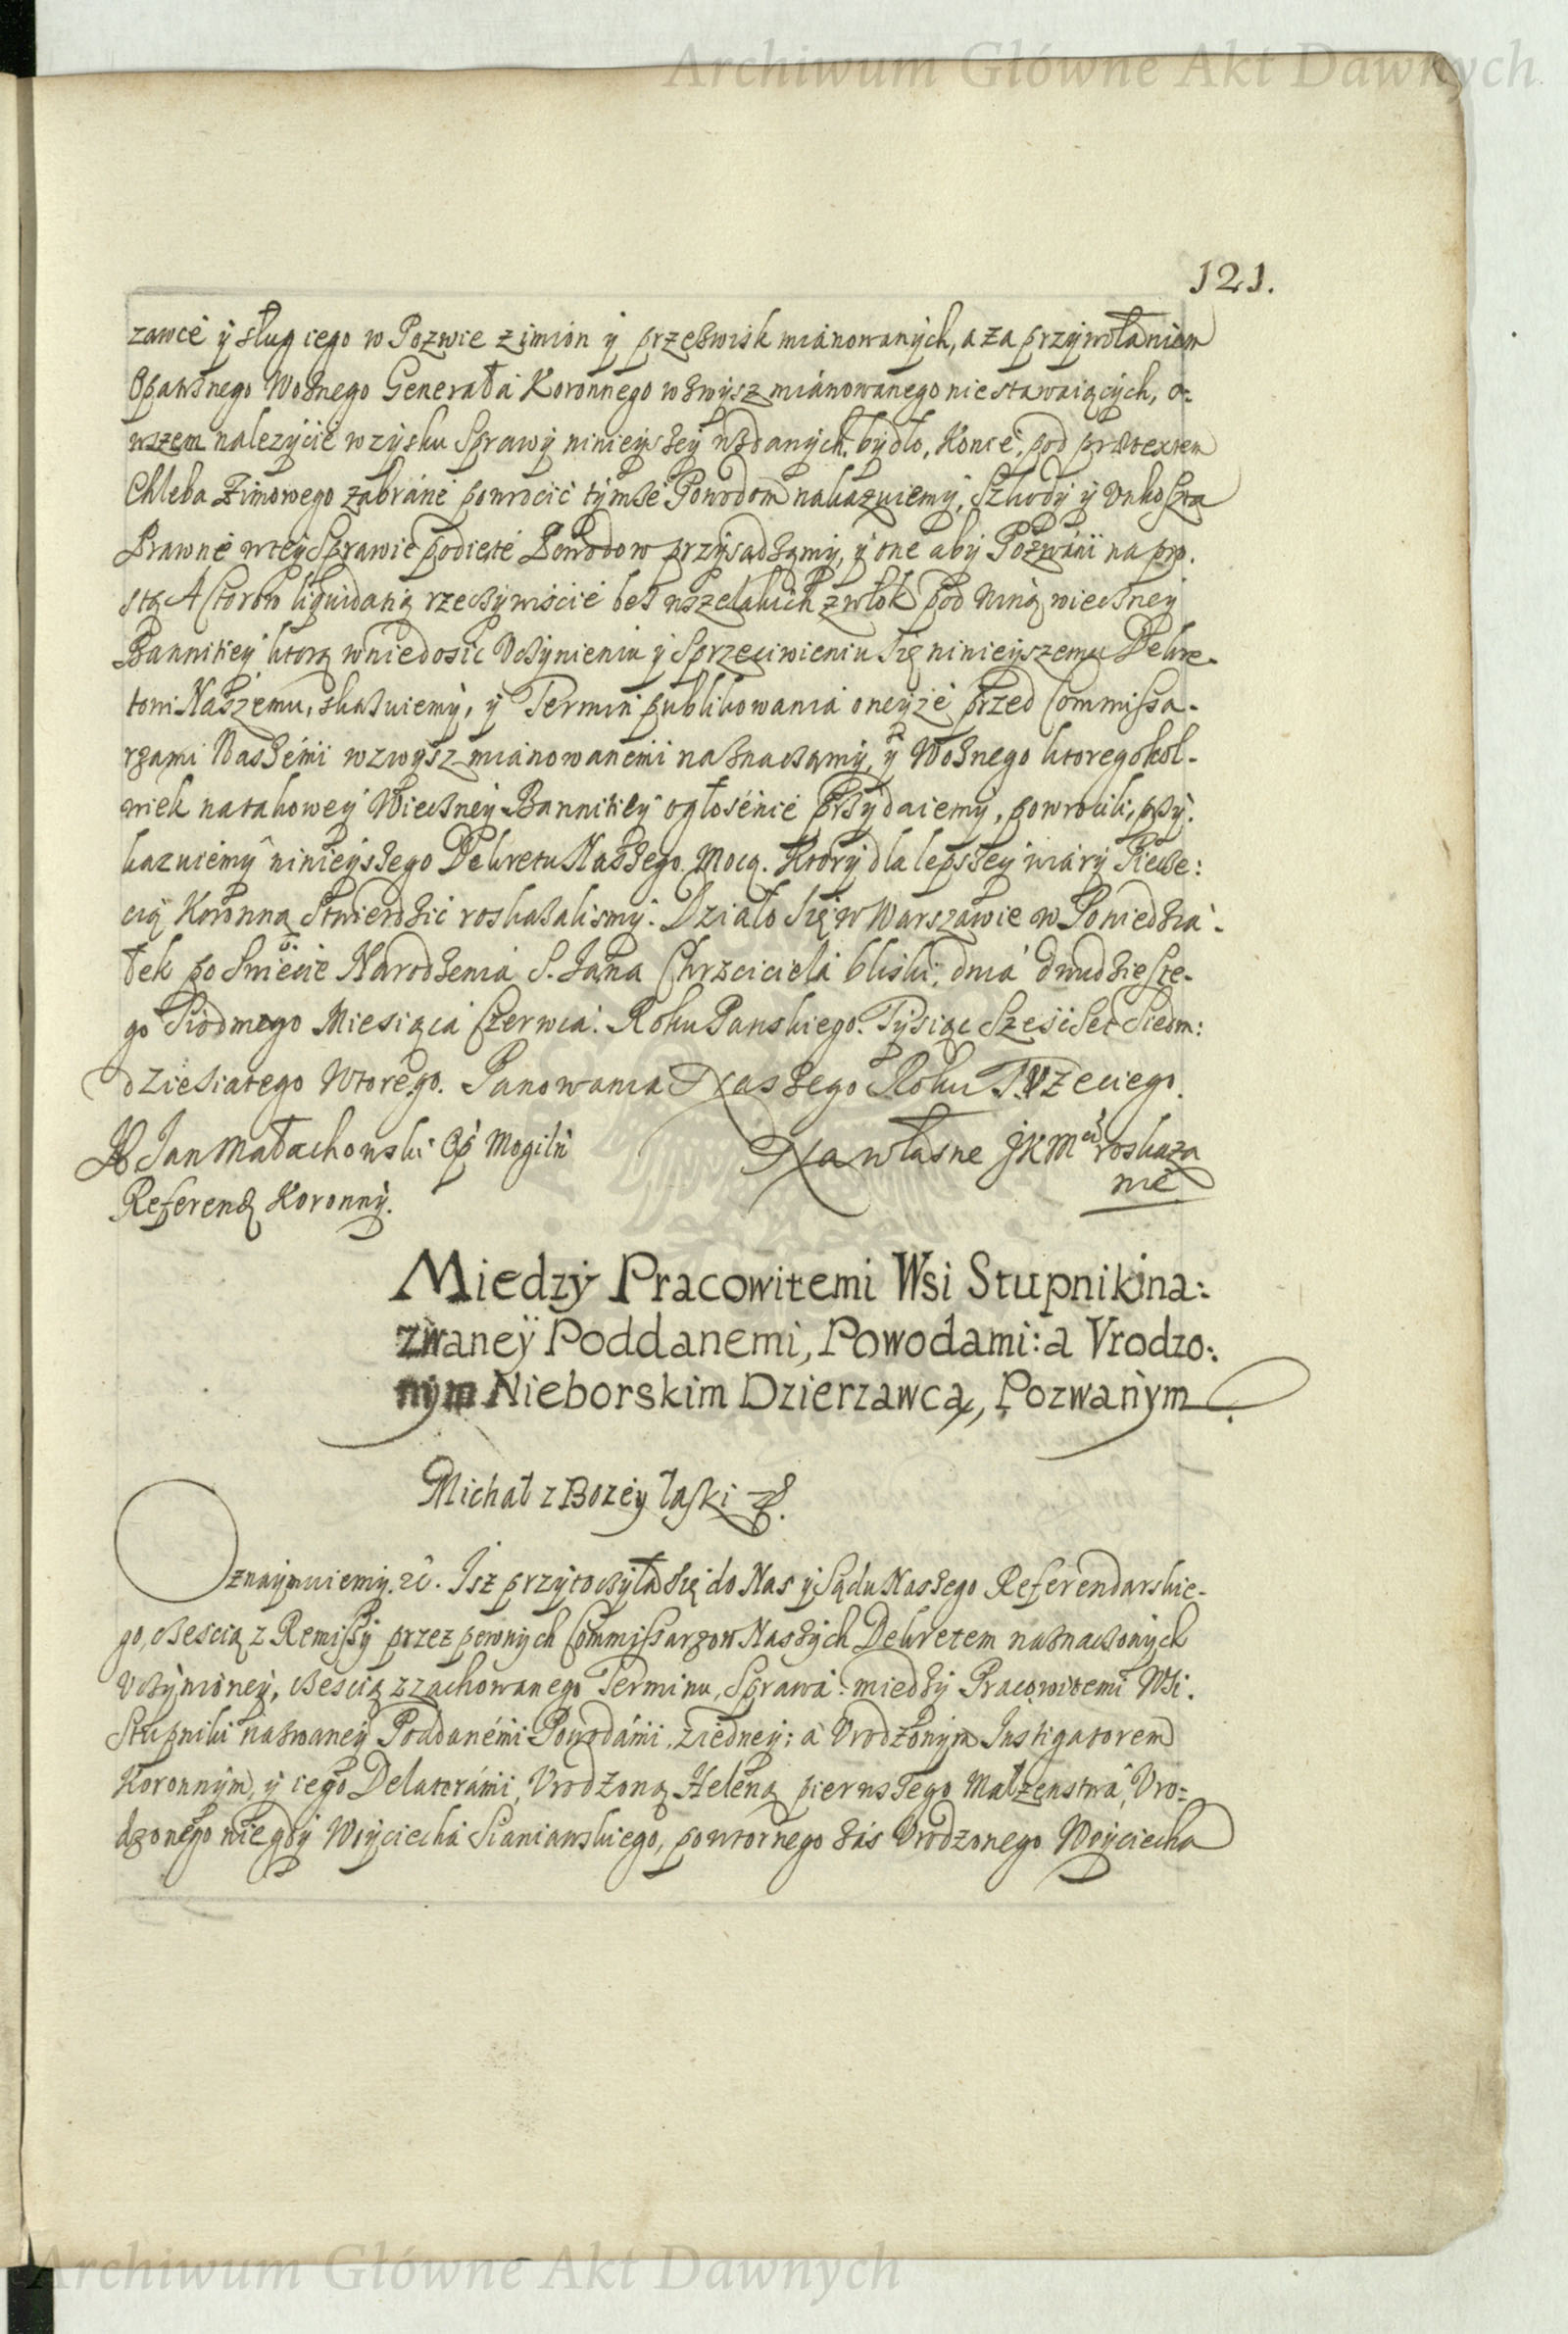 Archiwum Główne Akt Dawnych
121.
zawcè ÿ sług iego w Pozwie z imion ÿ przeswisk miánowanÿch, a za przÿwołaniem
Opatrznego Woznego Generała Koronnego wzwÿsz miánowanego nie stawaiącÿch, o=
wszem nalezÿcie w zysku Sprawÿ ninieÿszeÿ wzdanÿch. bydło, Konie, pod praetextem
Chleba Zimowego zabráne powrocić tÿmze Powodom nakazuiemÿ, Szkodÿ ÿ Unkoszta
Prawne w teÿ Sprawie podięte Powodow przÿsądzamÿ, ÿ one abÿ Pozwáni na pro.
stą Actorow liquidatią rzeczÿwiście bez wszelakich zwłok pod winą wieczneÿ
Bannitieÿ ktorą w niedosić Uczÿnieniu ÿ Sprzeciwieniu się ninieÿszemu Dekre-
towi Naszemu, skazuiemÿ, ÿ Termin publikowania oneÿże przed Commissa-
rzami Naszémi wzwysz mianowanemi naznaczamÿ, ÿ Woznego ktoregokol-
wiek na takoweÿ Wieczneÿ Bannitieÿ ogłośenie przÿdaiemÿ, powrocili, przÿ:
kazuiemÿ ninieÿszego Dekretu Naszego Mocą. Ktorÿ dla lepszeÿ wiárÿ Piecze:
cią Koronną Stwierdzić roskazalismÿ. Działo się w Warszawie w Poniedzia-
łek po Swięcie Narodzenia S. Jana Chrzciciela bliski, dnia dwudzieste-
go Siodmego Miesiąca Czerwca. Roku Panskiego. Tÿsiąc Sześćset Siedm:
dziesiatego Wtorego. Panowania Naszego Roku Trzeciego.
X Jan Małachowski Op Mogilń
Na własne JKMci roskaza
nie
Referend Koronnÿ.
Miedzÿ Pracowitemi Wsi Stupnikina:
zwaneÿ Poddanemi, Powodami: a Vrodzo:
nym Nieborskim Dzierzawcą, Pozwanym
Michał z Bozey łaski
Oznaÿmuiemÿ. &c. Isz przÿtoczÿła się do Nas ÿ Sądu Naszego Referendarskie-
go, czescią z Remissÿ przez pewnÿch Commissarzow Naszÿch Dekretem naznaczonÿch
Uczÿnioneÿ, czescią z zachowanego Terminu, Sprawa: miedzÿ Pracowitemi Wsi.
Stupniki nazwaneÿ Poddanémi Powodámi, z iedneÿ: a Urodzonÿm Instigatorem
Koronnÿm, ÿ iego Delatorámi, Urodzoną Heleną pierwszego Małzenstwá, Uro=
dzonego niegdÿ Woÿciecha Sianiawskiego, powtornego zás Urodzonego Woÿciecha
Archiwum Główne Akt Dawnych